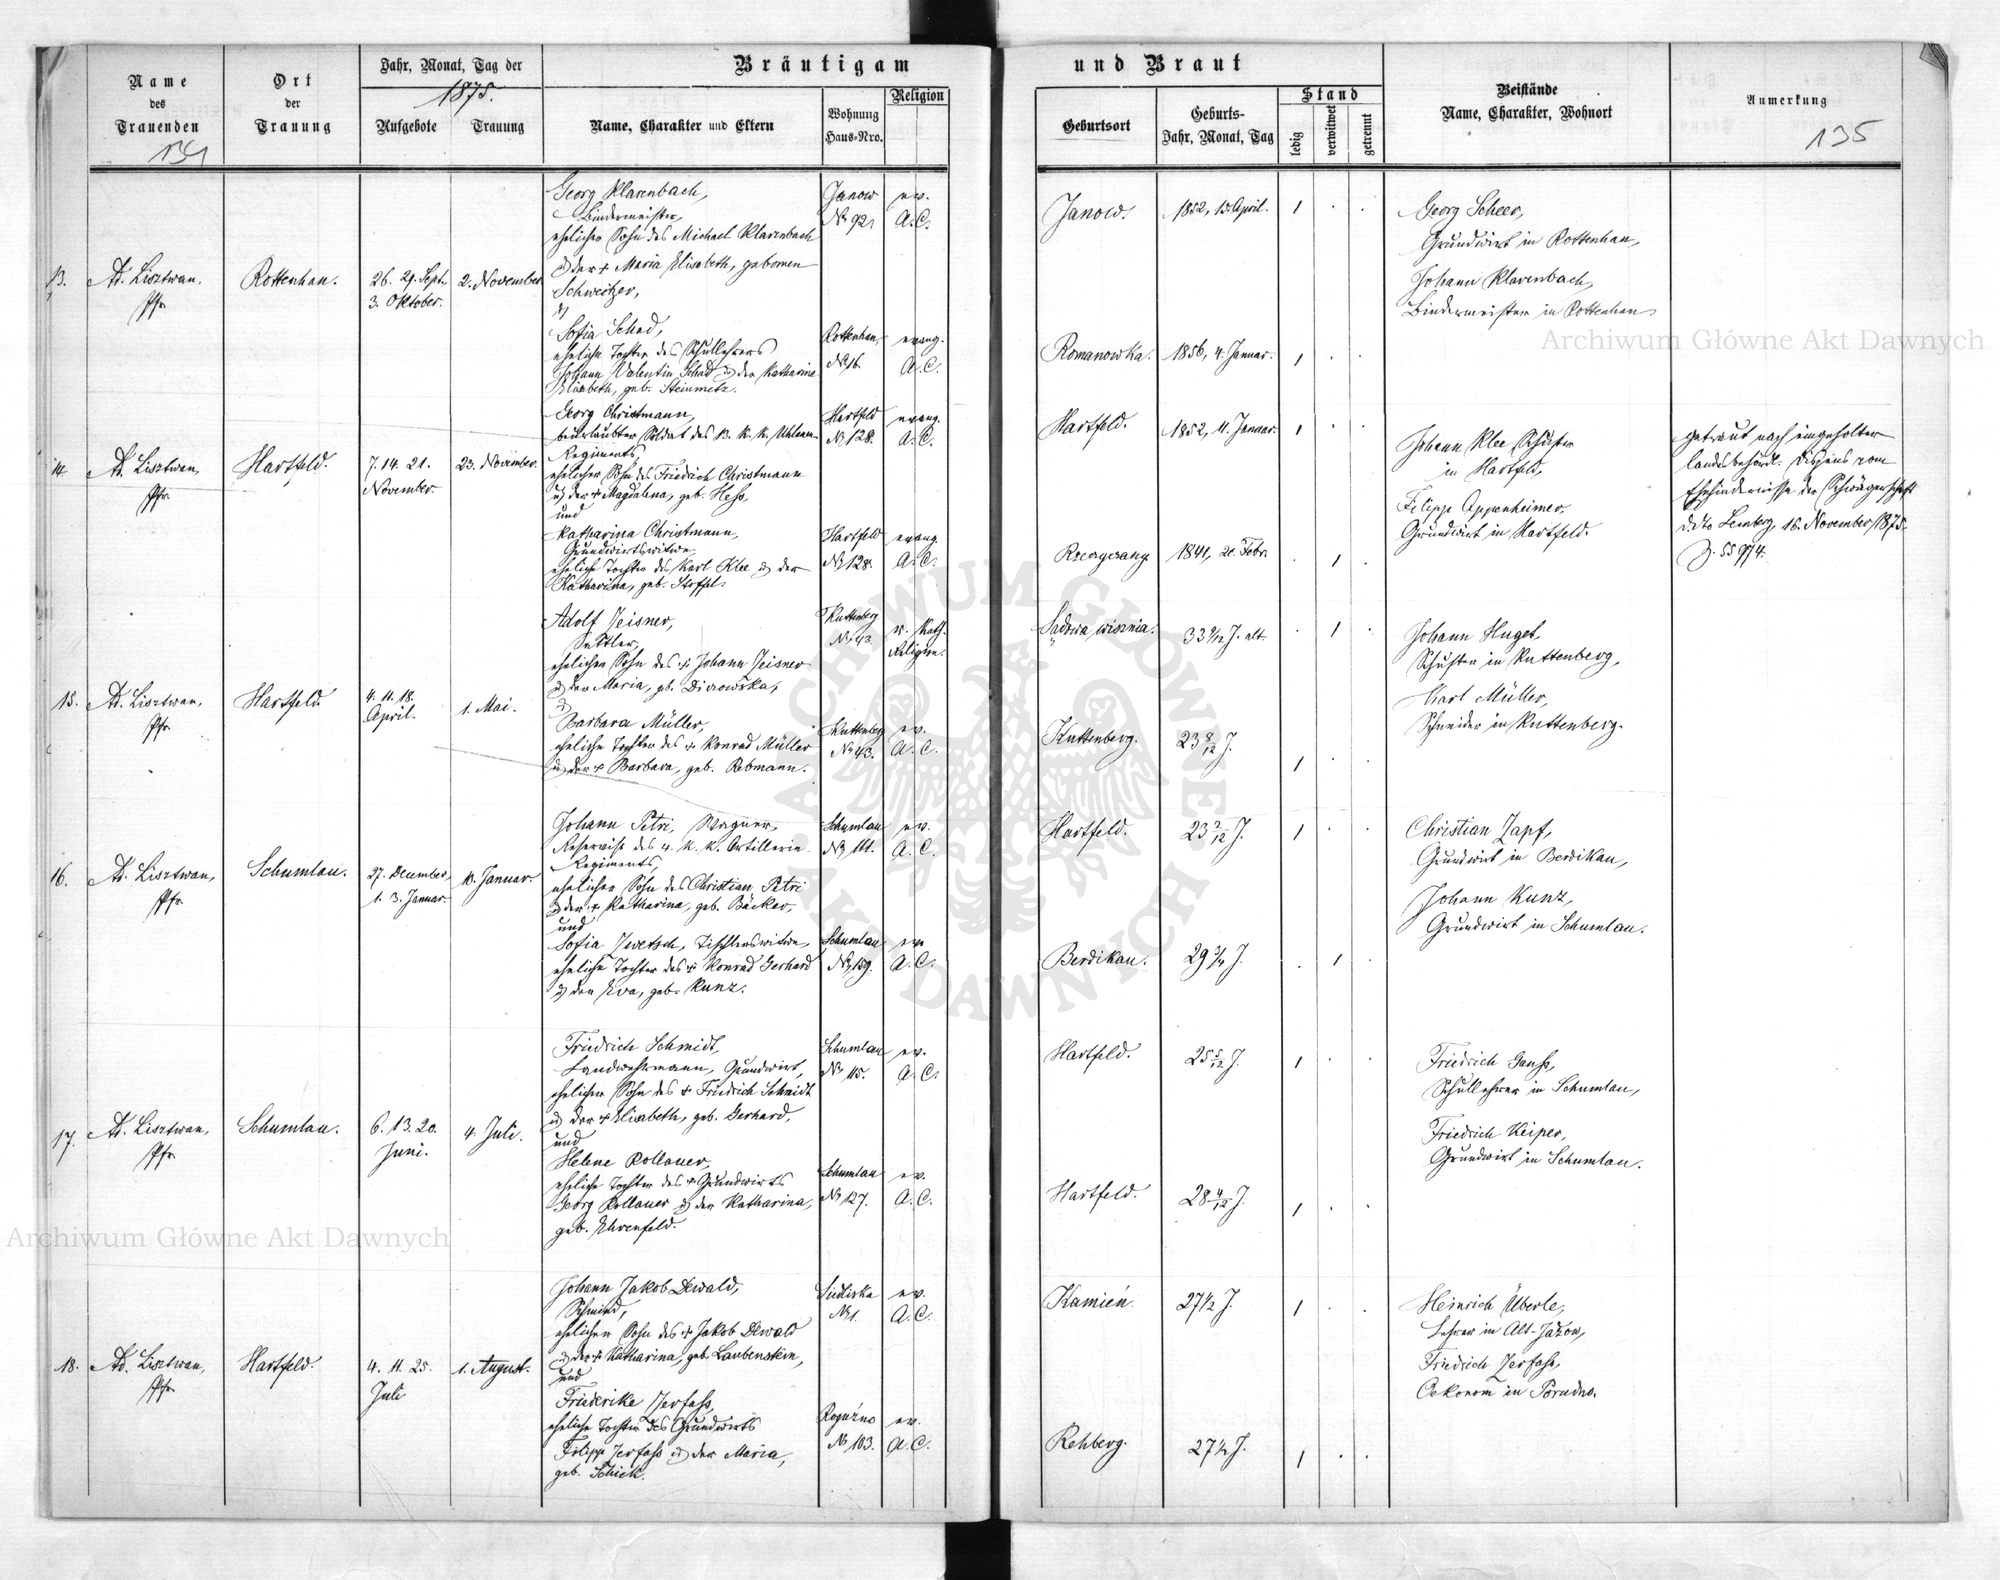 Name
des
Trauenden
Ort
der
Trauung
Jahr, Monat, Tag der
1875.
Aufgebote
Trauung
Bräutigam
Name, Charakter und Eltern
Wohnung
Haus-Nro.
Religion
und Braut
Geburtsort
Geburts-
Jahr, Monat, Tag
Stand
ledig
verwitwet
getrennt
Beistände
Name, Charakter, Wohnort
Anmerkung
135
13.
Ad. Lisztwan,
Pfr.
Rottenhan.
26. 29. Sept.,
3. Oktober.
2. November
Georg Klarenbach,
Bindermeister,
ehelicher Sohn des Michael Klarenbach
u) der + Maria Elisabeth, gebornen
Schweitzer,
u)
Sofia Schad,
eheliche Tochter des Schullehrers
Johann Valentin Schad u) der Katharina
Elisabeth, geb. Steinmetz.
Janow
No 92,
ev.
A. C.
Rottenhan,
No 16.
evang.
A. C.
Janow.
1852, 15. April.
Romanowka.
1856, 4. Januar.
Georg Scheer,
Grundwirt in Rottenhan,
Johann Klarenbach,
Bindermeister in Rottenhan
14.
Ad. Lisztwan,
Pfr.
Hartfeld.
7. 14. 21.
November.
23. November.
Georg Christmann,
beurlaubter Soldat des 13. K. K. Uhlanen-
Regiments,
ehelicher Sohn des Friedrich Christmann
u) der + Magdalena, geb. Hess,
und
Katharina Christmann,
Grundwirtswitwe,
eheliche Tochter des Karl Klee u) der
Katharina, geb. Stoffel.
Hartfeld
No 128.
evang.
A. C.
Hartfeld
No 128.
evang.
A. C.
Hartfeld.
1852, 11. Januar.
1841, 20. Febr.
Johann Klee, Schuster
in Hartfeld,
Filipp Oppenheimer,
Grundwirt in Hartfeld.
getraut nach eingeholter
landesbehördl. Dispens vom
Ehehindernisse der Schwägerschaft
ddto Lemberg, 16. November 1875.
Z. 55974.
15.
Ad. Lisztwan,
Pfr.
Hartfeld.
4. 11. 18.
April.
1. Mai.
Adolf Zeisner,
Sattler,
ehelicher Sohn des + Johann Zeisner
u) der Maria,
u)
Barbara Müller,
eheliche Tochter des + Konrad Müller
u) der + Barbara, geb. Rebmann.
Kuttenberg
No 43.
r. kath.
Religion.
Kuttenberg
No 43.
ev.
A. C.
Sądowa wisznia.
33 9/12 J. alt.
Kuttenberg.
23 8/12 J.
Johann Huget,
Schuster in Kuttenberg,
Karl Müller,
Schneider in Kuttenberg.
16.
Ad. Lisztwan,
Pfr.
Schumlau.
27. Dezember,
1. 3. Januar.
10. Januar.
Johann Petri, Wagner,
Reservist des 4. K. K. Artillerie-
Regiments,
ehelicher Sohn des Christian Petri
u) der + Katharina, geb. Bäcker,
und
Sofia Zwetsch, Tischlerswitwe,
eheliche Tochter des + Konrad Gerhard
u) der Eva, geb. Kunz.
Schumlau
No 111.
ev.
A. C.
Schumlau
No 159.
ev.
A. C.
Hartfeld.
23 2/12 J.
Berdikau.
29 3/4 J.
Christian Zapf,
Grundwirt in Berdikau,
Johann Kunz,
Grundwirt in Schumlau.
17.
Ad. Lisztwan,
Pfr.
Schumlau.
6. 13. 20.
Juni.
4. Juli.
Friedrich Schmidt,
Landwehrmann, Grundwirt,
ehelicher Sohn des + Friedrich Schmidt
u) der + Elisabeth, geb. Gerhard,
und
Helene Rollauer,
eheliche Tochter des + Grundwirts
Georg Rollauer u) der Katharina,
geb. Ehrenfeld.
Schumlau
No 115.
ev.
A. C.
Schumlau
No 127.
ev.
A. C.
Hartfeld.
25 5/12 J.
Hartfeld.
28 4/12 J.
Friedrich Ganss,
Schullehrer in Schumlau,
Friedrich Keiper,
Grundwirt in Schumlau.
18.
Ad. Lisztwan,
Pfr.
Hartfeld.
4. 11. 25.
Juli
1. August.
Johann Jakob Dewald,
Schmied,
ehelicher Sohn des + Jakob Dewald
u) der + Katharina, geb. Laubenstein,
und
Friederike Zerfass,
eheliche Tochter des Grundwirts
Filipp Zerfass u) der Maria,
geb. Schick.
Siedliska
No 1.
ev.
A. C.
Rogużno
No 103.
ev.
A. C.
Kamień.
27 1/2 J.
Rehberg.
27 1/2 J.
Heinrich Überle,
Lehrer in Alt-Jażow,
Friedrich Zerfass,
Oekonom in Porudno.
Archiwum Główne Akt Dawnych
Archiwum Główne Akt Dawnych
ARCHIWUM GŁÓWNE AKT DAWNYCH